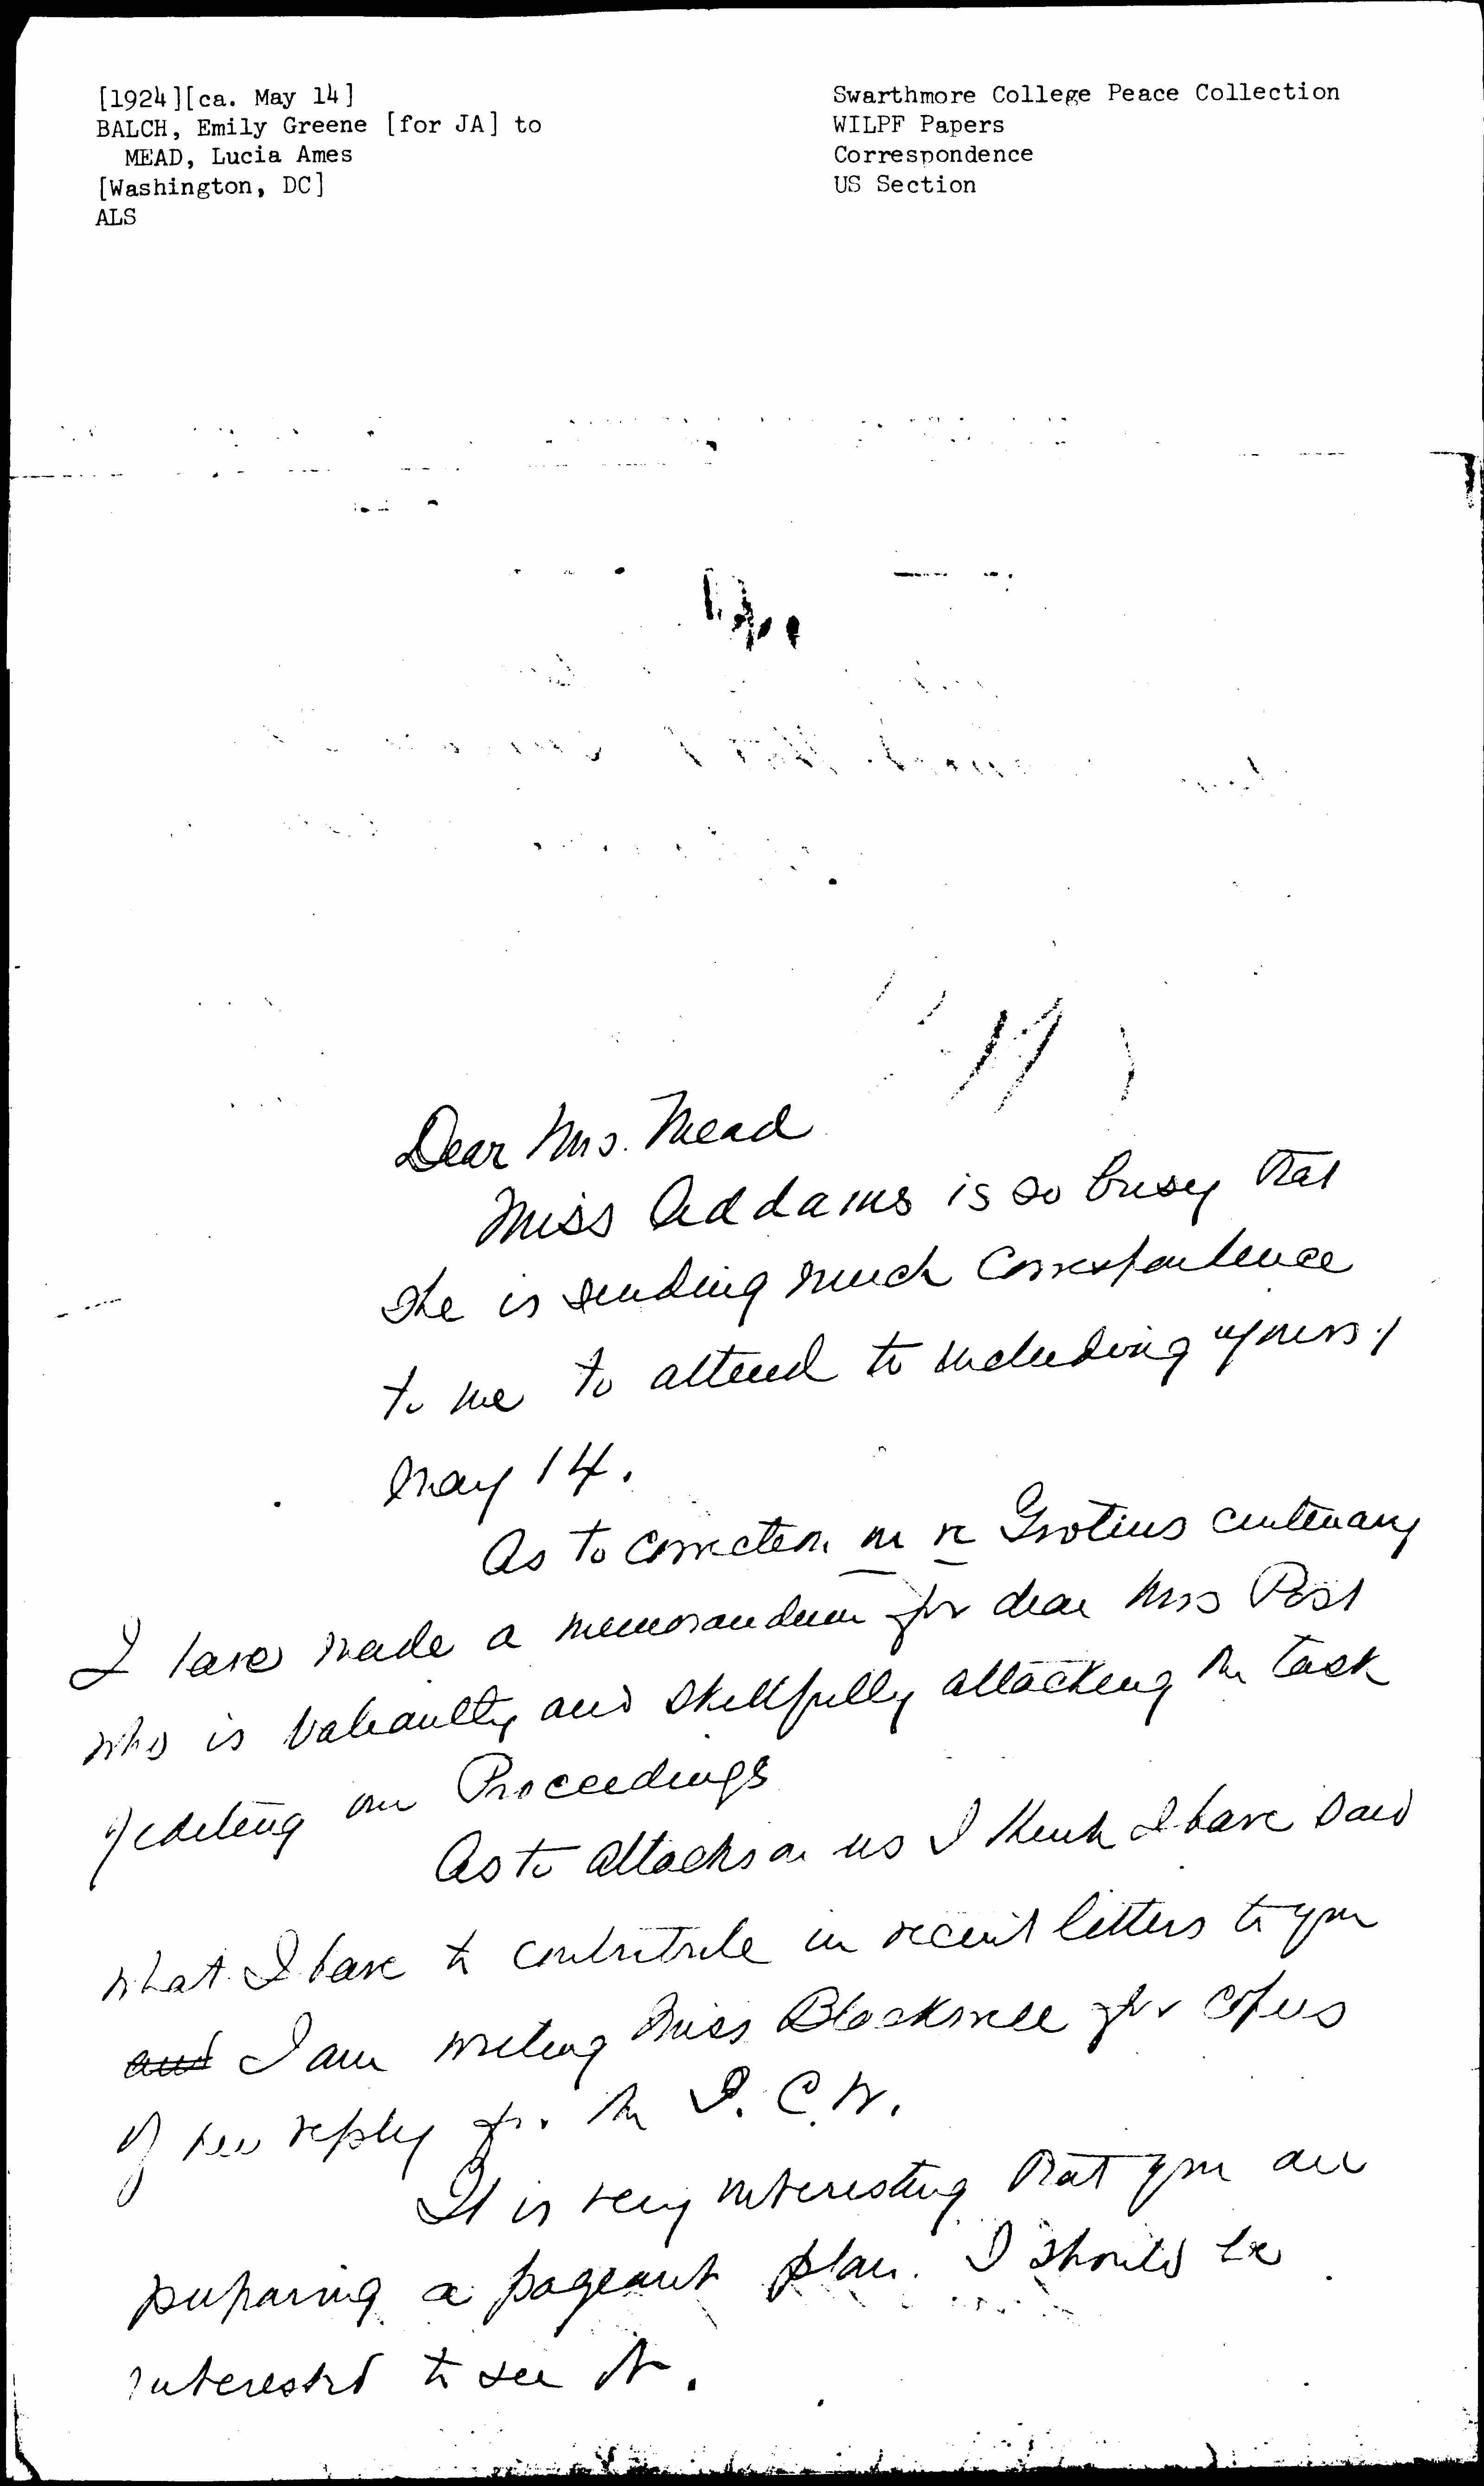 [1924][ca. May 14]
BALCH, Emily Greene [for JA] to
MEAD, Lucia Ames
[Washington, DC]
ALS
Swarthmore College Peace Collection
WILPF Papers
Correspondence
US Section
Dear Mrs. Mead
Miss Addams is so busy that
she is sending much correspondence
to me to attend to including yours of
May 14.
As to correction in re Grotius centenary
I have made a memorandum for dear Mrs Post
who is valiantly and skillfully attacking the task
of editing our Proceedings
As to attacks on us I think I have said
what I have to contribute in recent letters to you
and I am writing Miss Blackwell for copies
of her reply for the I. C. W.
It is very interesting that you are
preparing a pageant plan. I should be
interested to see it.